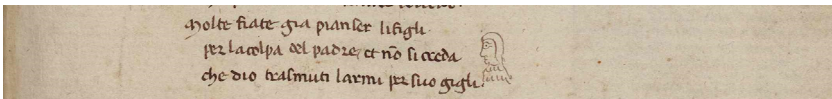 Molte fiate gia pianser lifigli
per lacolpa del padre, et nō si creda
che dio trasmuti larmi per suo gigli.